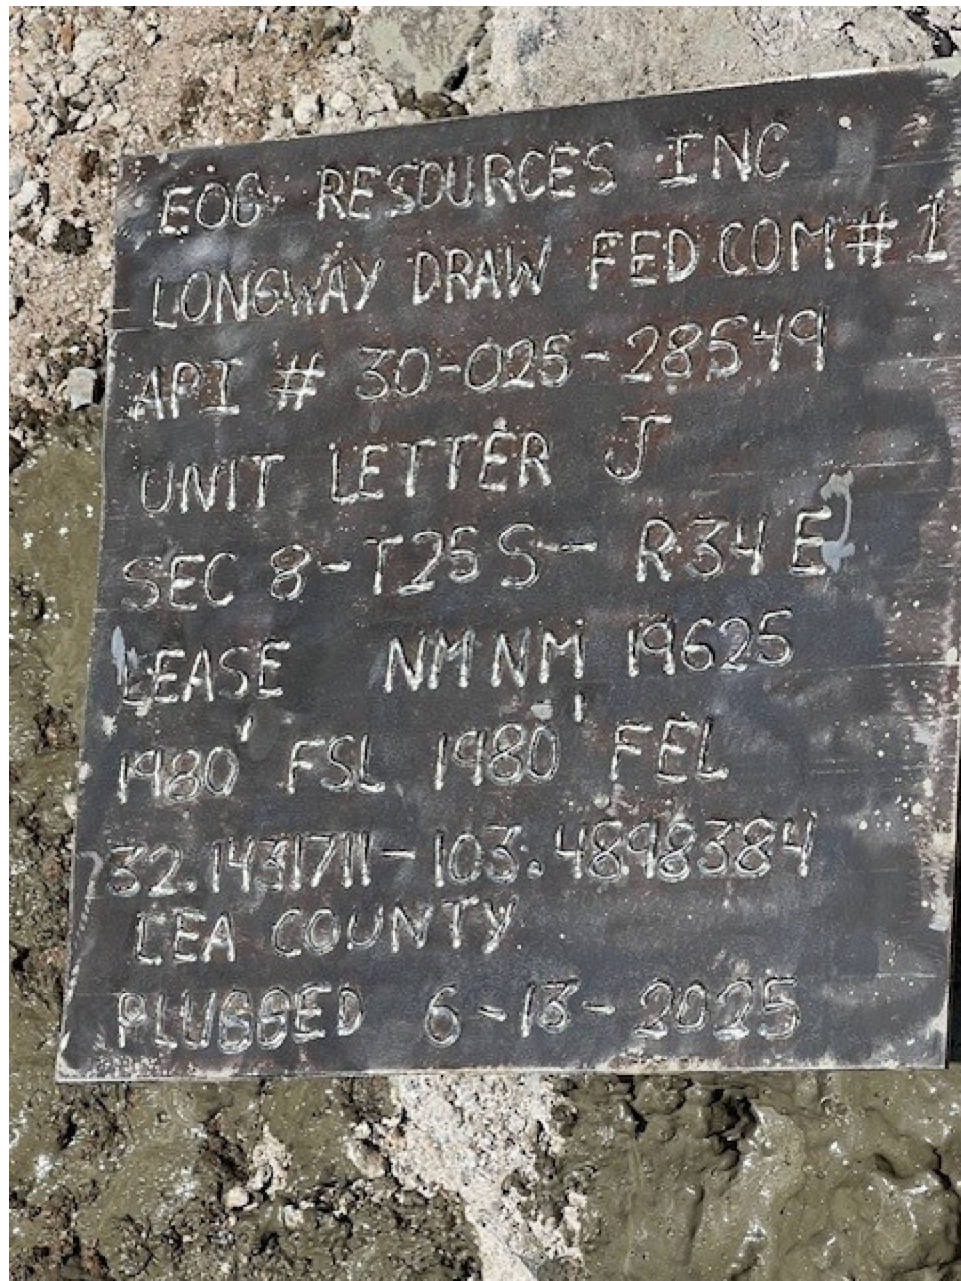 EOG RESOURCES INC
LONGWAY DRAW FED COM # 1
API # 30-025-28549
UNIT LETTER J
SEC 8-T25S-- R34E
LEASE NMNM 19625
1980' FSL 1980' FEL
32.1431711-103.4898384
LEA COUNTY
PLUGGED 6-13-2025